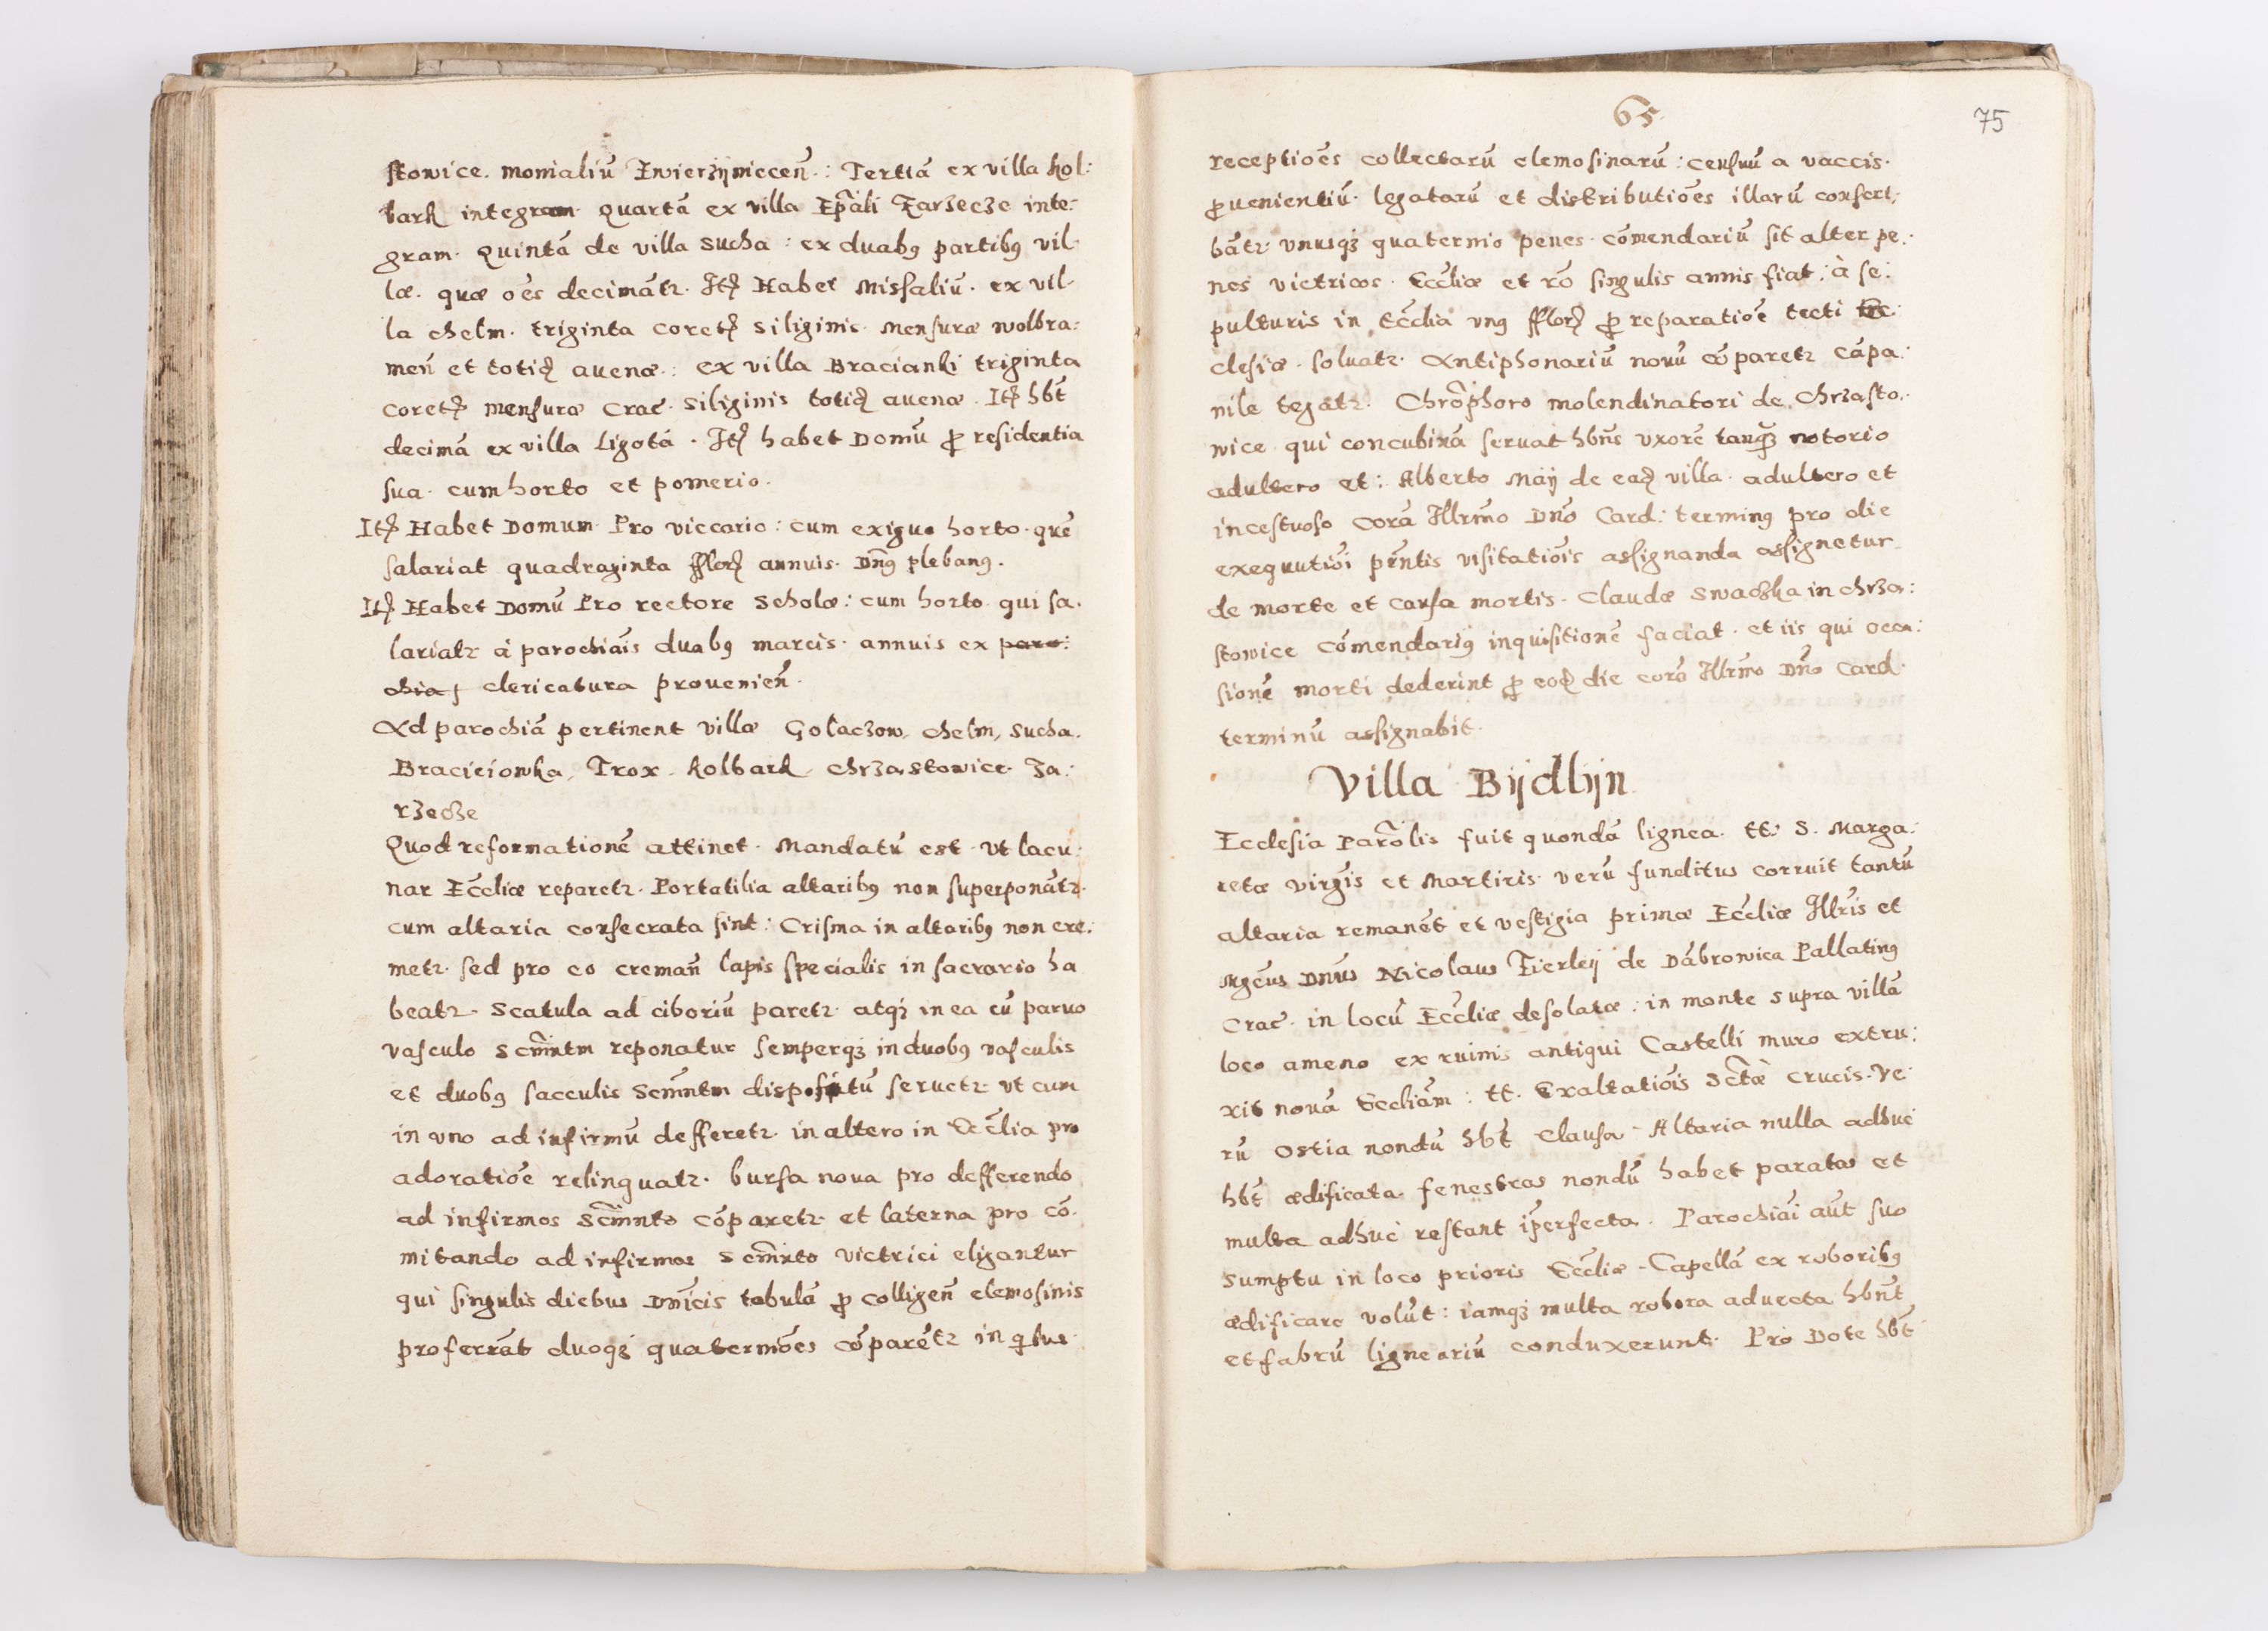 stowice. monialiũ Zwierzÿniecen̄.: Tertiā ex villa kol:
bark integram. Quartā ex villa Ep̃ali Zarzecze inte:
gram. Quintā de villa Sucha: ex duabꝰ partibꝰ vil:
læ. quæ oẽs decimãtr. Itẽ Habet Missaliũ. ex vil:
la chelm. triginta coretẽ siliginis. mensuræ wolbra:
men̄ et totid̃ auenæ.: ex villa Bracianki triginta
coretẽ mensuræ Crac̃. siliginis totid̃ auenæ. Itẽ hb̃t
decimã ex villa Ligotã. Itẽ habet Domũ ꝓ residentia
sua. cum horto et pomerio.
Itẽ Habet Domum Pro viccario: cum exiguo horto. quẽ
salariat quadraginta fflorẽ annuis. Dn̄ꝰ plebanꝰ.
Itẽ Habet Domũ Pro rectore Scholæ: cum horto qui sa.
lariatr à parochiãis duabꝰ marcis. annuis ex paro:
chia, clericatura prouenien̄.
Ad parochiã pertinent villæ Golaczow, chelm, Sucha.
Braciciowka, Trox. kolbark chrzastowice. Za:
rzecze
Quod reformationẽ attinet. Mandatũ est. Vt lacu:
nar Ecc̃liæ reparetr. Portatilia altaribꝰ non superponãtr.
cum altaria consecrata sint: Crisma in altaribꝰ non cre:
metr. sed pro eo creman̄ lapis specialis in sacrario ha
beatr. Scatula ad ciboriũ paretr. atqꝫ in ea cũ paruo
vasculo Scm̃ntm reponatur semperqꝫ in duobꝰ vasculis
et duobꝰ sacculis Scm̃ntm dispositũ seruetr. vt cum
in vno ad infirmũ defferetr. in altero in Ecc̃lia pro
adoratiõe relinquatr. bursa noua pro defferendo
ad infirmos Scm̃nto cõparetr. et laterna pro cõ.
mitando ad infirmos Scm̃nto victrici eligantur
qui singulis diebus Dn̄icis tabulã ꝓ colligen̄ elemosinis
proferrãt duoqꝫ quaterniões cõparẽtr in qibus.
65
75
receptiões collectarũ elemosinarũ: censuũ a vaccis.
ꝓuenientiũ. legatarũ et distributiões illarũ conscri:
bãtr. vnusqꝫ quaternio penes. cõmendariũ sit alter pe.
nes victricos. Ecc̃liæ et rõ singulis annis fiat: à se:
pulturis in Ecc̃lia vnꝰ fflorẽ ꝓ reparatiõe tecti Ec:
clesiæ. soluatr. Antiphonariũ nouũ cõparetr cãpa:
nile tegatr. Chrõphoro molendinatori de Chrzasto.
wice qui concubinã seruat hb̃ns vxorẽ tanqꝫ notorio
adultero et: Alberto Maÿ de ead̃ villa. adultero et
incestuoso corã Illrm̃o Dn̄o Card: terminꝰ pro die
exequutiõi pr̃ntis visitatiõis assignanda assignetur.
de morte et causa mortis. Claudæ Swaczka in chrza:
stowice Cõmendariꝰ inquisitionẽ faciat. et iis qui occa:
sionẽ morti dederint ꝓ eod̃ die corã Illrm̃o Dn̄o Card.
terminũ assignabit.
Villa Bÿdlÿn
Ecclesia Parõlis fuit quondã lignea. tt: S. Marga:
retæ virg̃is et Martiris. verũ funditus corruit tantũ
altaria remanẽt et vestigia primæ Ecc̃liæ Illr̃is et
Mgc̃us Dn̄us Nicolaus Fierleÿ de Dãbrowica Pallatinꝰ
Crac̃. in locũ Ecc̃liæ desolatæ: in monte supra villã
loco ameno ex ruinis antiqui Castelli muro extru:
xit nouã Eccliãm: tt. Exaltatiõis Sc̃tæ Crucis. Ve
rũ ostia nondũ hb̃t clausa. Altaria nulla adhuc
hb̃t ædificata. fenestras nondũ habet paratas et
multa adhuc restant ĩperfecta. Parochiãi aũt suo
sumptu in loco prioris Ecc̃liæ. Capellã ex roboribꝰ
ædificare volũt: iamqꝫ multa robora aduecta hbñt
et fabrũ lignariũ conduxerunt. Pro Dote hb̃t